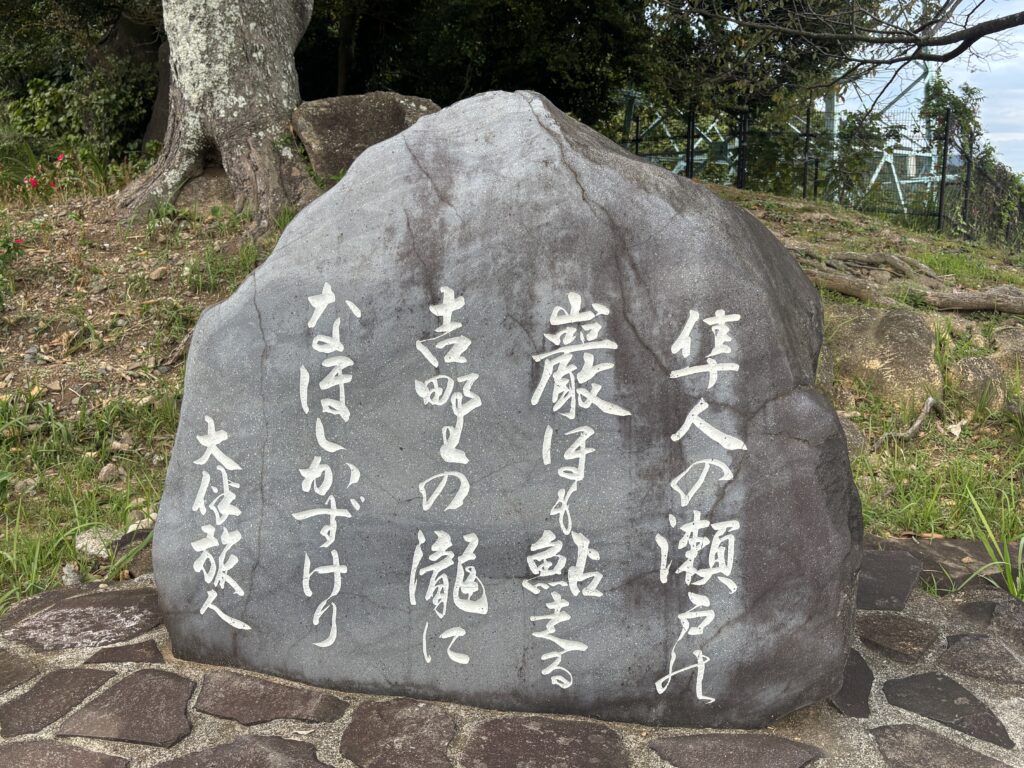 隼人の瀬戸の
巌ほも鮎走る
吉野の瀧に
なほしかずけり
大伴旅人